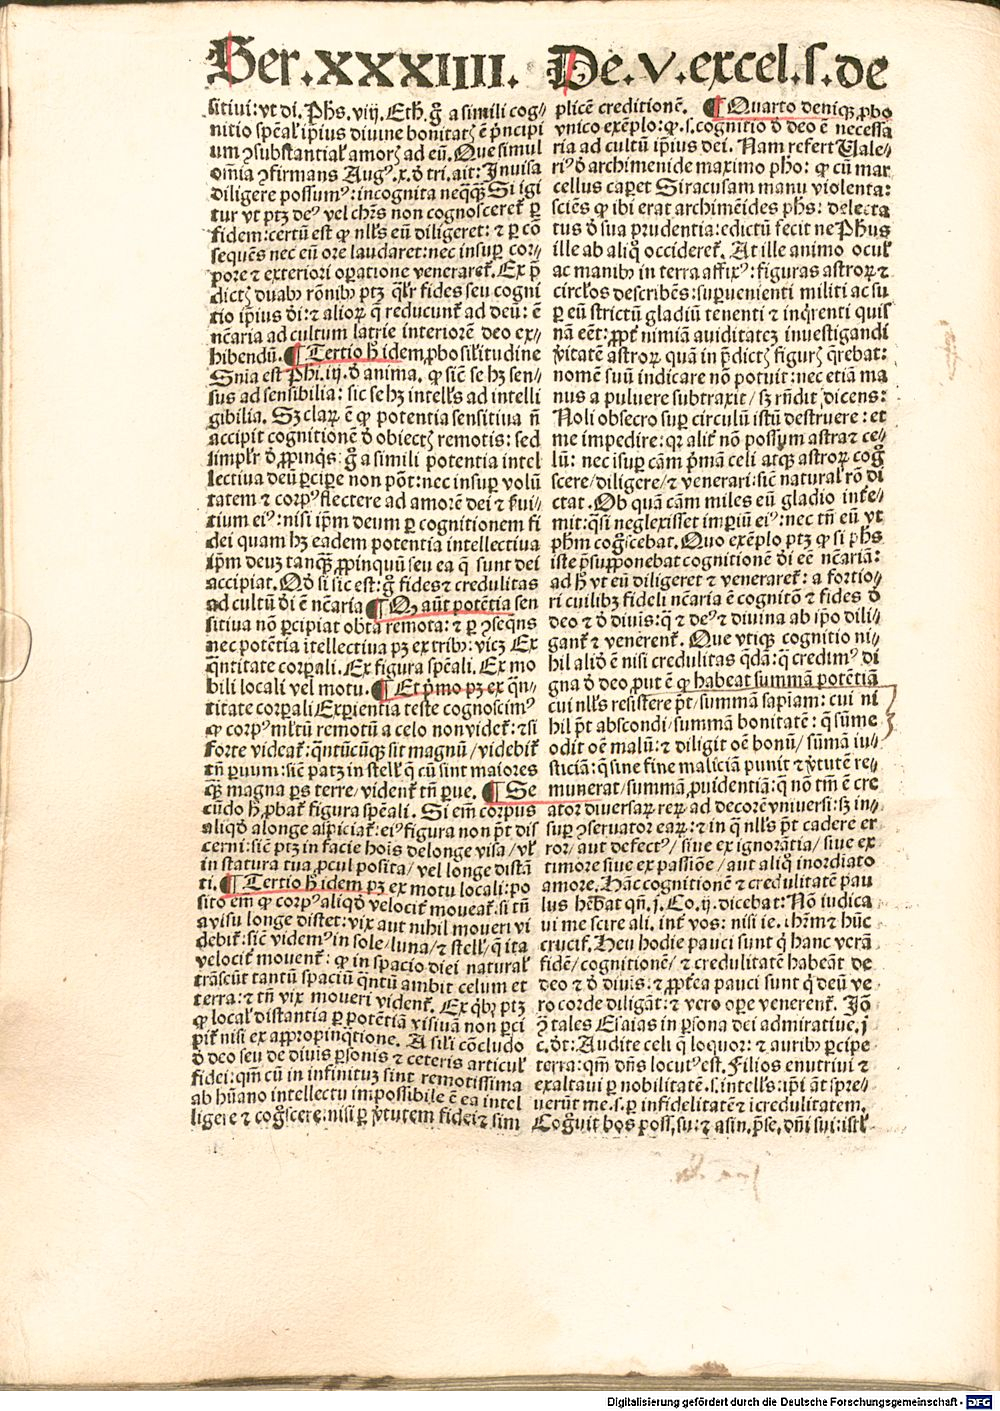 Ser.XXXIIII. De.V.excel.s.de
sitiui: vt di. Phs. viij. Eth. g̃ a simili cog⸗
nitio spẽal' ip̃ius diuine bonitatꝭ ẽ p̃ncipi
um ꝯsubstantial' amorꝭ ad eũ. Que simul
om̃ia ꝯfirmans Augꝰ.x.đ tri.ait: Inuisa
diligere possumꝰ: incognita neq̃q̃ꝫ Si igi
tur vt ptꝫ deꝰ vel chr̃s non cognosceret' ꝑ
fidem: certũ est ꝙ nll's eũ diligeret: ⁊ ꝑ cõ
sequẽs nec eũ ore laudaret: nec insuꝑ cor⸗
pore ⁊ exteriori oꝑatione veneraret'. Ex p̃
dictꝭ duabꝰ rõnibꝰ ptꝫ q̃l'r fides seu cogni
tio ip̃ius đi: ⁊ alioꝝ q̃ reducunt' ad deũ: ẽ
nc̃aria ad cultum latrie interiorẽ deo ex⸗
hibendũ. ¶ Tertio h̃ idem ꝓbo sil'itudine
Snia est Phi. iij. đ anima. ꝙ sic̃ se hꝫ sen⸗
sus ad sensibilia: sic se hꝫ intell's ad intelli
gibilia. Sꝫ claꝝ ẽ ꝙ potentia sensitiua ñ
accipit cognitionẽ đ obiectꝭ remotis: sed
simpl'r đ ꝓpinq̃s: g̃ a simili potentia intel
lectiua deũ ꝑcipere non põt: nec insuꝑ volũ
tatem ⁊ corpꝰ flectere ad amorẽ dei ⁊ ẜui⸗
tium eiꝰ: nisi ip̃m deum ꝑ cognitionem fi
dei quam hꝫ eadem potentia intellectiua
ip̃m deuꝫ tanq̃ꝫ ꝓpinquũ seu ea q̃ sunt dei
accipiat. Qđ si sic est: g̃ fides ⁊ credulitas
ad cultũ đi ẽ nc̃aria ¶ Qꝫ aũt potẽtia sen
sitiua nõ ꝑcipiat obta remota: ⁊ ꝑ ꝯseq̃ns
nec potentia itellectiua pꝫ ex tribꝰ: vicꝫ Ex
q̃ntitate corꝑali. Ex figura spẽali. Ex mo
bili locali vel motu. ¶ Et p̃mo pꝫ ex q̃n⸗
titate corꝑali Exꝑientia teste cognoscimꝰ
ꝙ corpꝰ ml'tũ remotũ a celo non videt': ⁊ si
forte videat': q̃ntũcũqꝫ sit magnũ / videbit'
tñ ꝑuum: sic̃ patꝫ in stell' q̃ cũ sint maiores
q̃ꝫ magna ꝑs terre / vident' tñ ꝑue. ¶ Se
cũdo h̃ ꝓbat' figura spẽali. Si em̃ corpus
aliqđ a longe aspiciat': eiꝰ figura non p̃t dis
cerni: sic̃ ptꝫ in facie hois delonge visa / vl'
in statura tua ꝓcul posita / vel longe distã
ti. ¶ Tertio h̃ idem pꝫ ex motu locali: po
sito em̃ ꝙ corpꝰ aliqđ velocit' moueat'. si tñ
a visu longe distet: vix aut nihil moueri vi
debit': sic̃ videmꝰ in sole / luna / ⁊ stell' / q̃ ita
velocit' mouent': ꝙ in spacio diei natural'
trãseũt tantũ spaciũ q̃ntũ ambit celum et
terra: ⁊ tñ vix moueri vident'. Ex q̃bꝰ ptꝫ
ꝙ local' distantia ꝑ potẽtiã visiuã non ꝑci
pit' nisi ex appropinq̃tione. A sil'i cõcludo
đ deo seu de diuis ꝑsonis ⁊ ceteris articul'
fidei: qm̃ cũ in infinituꝫ sint remotissima
ab hũano intellectu impossibile ẽ ea intel
ligere ⁊ cog̃scere: nisi ꝑ v̾tutem fidei ⁊ sim
plicẽ creditionẽ. ¶ Quarto deniqꝫ ꝓbo
vnico exẽplo: ꝙ.s.cognitio đ deo ẽ necessa
ria ad cultũ ip̃ius dei. Nam refert Vale⸗
riꝰ đ archimenide maximo pho: ꝙ cũ mar
cellus caꝑet Siracusam manu violenta:
sciẽs ꝙ ibi erat archimẽides phs: delecta
tus đ sua prudentia: edictũ fecit ne Phus
ille ab aliq̃ occideret'. At ille animo ocul'
ac manibꝰ in terra affixꝰ: figuras astroꝝ ⁊
circl'os describẽs: suꝑuenienti militi ac su
ꝑ eũ strictũ gladiũ tenenti ⁊ inq̃renti quis
nã eẽt: ꝓpt' nimiã auiditateꝫ inuestigandi
v̾itatẽ astroꝝ quã in p̃dictꝭ figurꝭ q̃rebat:
nomẽ suũ indicare nõ potuit: nec etiã ma
nus a puluere subtraxit / sꝫ rñdit dicens:
Noli obsecro suꝑ circulũ istũ destruere: et
me impedire: qꝛ alit' nõ possum astra ⁊ ce⸗
lũ: nec isuꝑ cãm p̃mã celi atqꝫ astroꝝ cog̃
scere / diligere / ⁊ venerari: sic̃ natural' rõ di
ctat. Ob quã cãm miles eũ gladio int'e⸗
mit: q̃si neglexisset imꝑiũ eiꝰ: nec tñ eũ vt
phm cog̃scebat. Quo exẽplo ptꝫ ꝙ si phs
iste p̃suppõnebat cognitionẽ đi eẽ nc̃ariã:
ad h̃ vt eũ diligeret ⁊ veneraret': a fortio⸗
ri cuilibꝫ fideli nc̃aria ẽ cognitõ ⁊ fides đ
deo ⁊ đ diuis: q̃ ⁊ deꝰ ⁊ diuina ab ip̃o dili
gant' ⁊ venerent'. Que vtiqꝫ cognitio ni⸗
hil aliđ ẽ nisi credulitas q̃dã: q̃ credimꝰ di
gna đ deo ꝓut ẽ ꝙ habeat summã potẽtiã
cui nll's resistere p̃t / summã sapiam: cui ni
hil p̃t abscondi / summã bonitatẽ: q̃ sũme
odit oẽ malũ: ⁊ diligit oẽ bonũ / sũmã iu⸗
sticiã: q̃ sine fine maliciã punit ⁊ v̾tutẽ re⸗
munerat / summã ꝓuidentiã: q̃ nõ tm̃ ẽ cre
ator diuersaꝝ reꝝ ad decorẽ vniuersi: sꝫ in⸗
suꝑ ꝯseruator eaꝝ: ⁊ in q̃ nll's p̃t cadere er
ror / aut defectꝰ / siue ex ignorãtia / siue ex
timore siue ex passiõe / aut aliq̃ inordiato
amore. Hãc cognitionẽ ⁊ credulitatẽ pau
lus hẽbat qñ.j.Co.ij.dicebat: Nõ iudica
ui me scire ali. int' vos: nisi ie. chr̃m ⁊ hũc
crucif. Heu hodie pauci sunt q̃ hanc verã
fidẽ / cognitionẽ / ⁊ credulitatẽ habeãt de
deo ⁊ đ diuis: ⁊ ꝓpt'ea pauci sunt q̃ deũ ve
ro corde diligãt: ⁊ vero oꝑe venerent'. Iõ
ꝯ̃ tales Esaias in ꝑsona dei admiratiue.j
c̃. đt: Audite celi q̃ loquor: ⁊ auribꝰ ꝑcipe
terra: qm̃ dñs locutꝰ est. Filios enutriui ⁊
exaltaui ꝑ nobilitatẽ.s.intell's: ip̃i aũt spre⸗
uerũt me.s.ꝑ infidelitatẽ ⁊ icredulitatem.
Cog̃uit bos poss. su: ⁊ asin. p̃se. dñi sui: isrl'
Digitalisierung gefördert durch die Deutsche Forschungsgemeinschaft - DFG